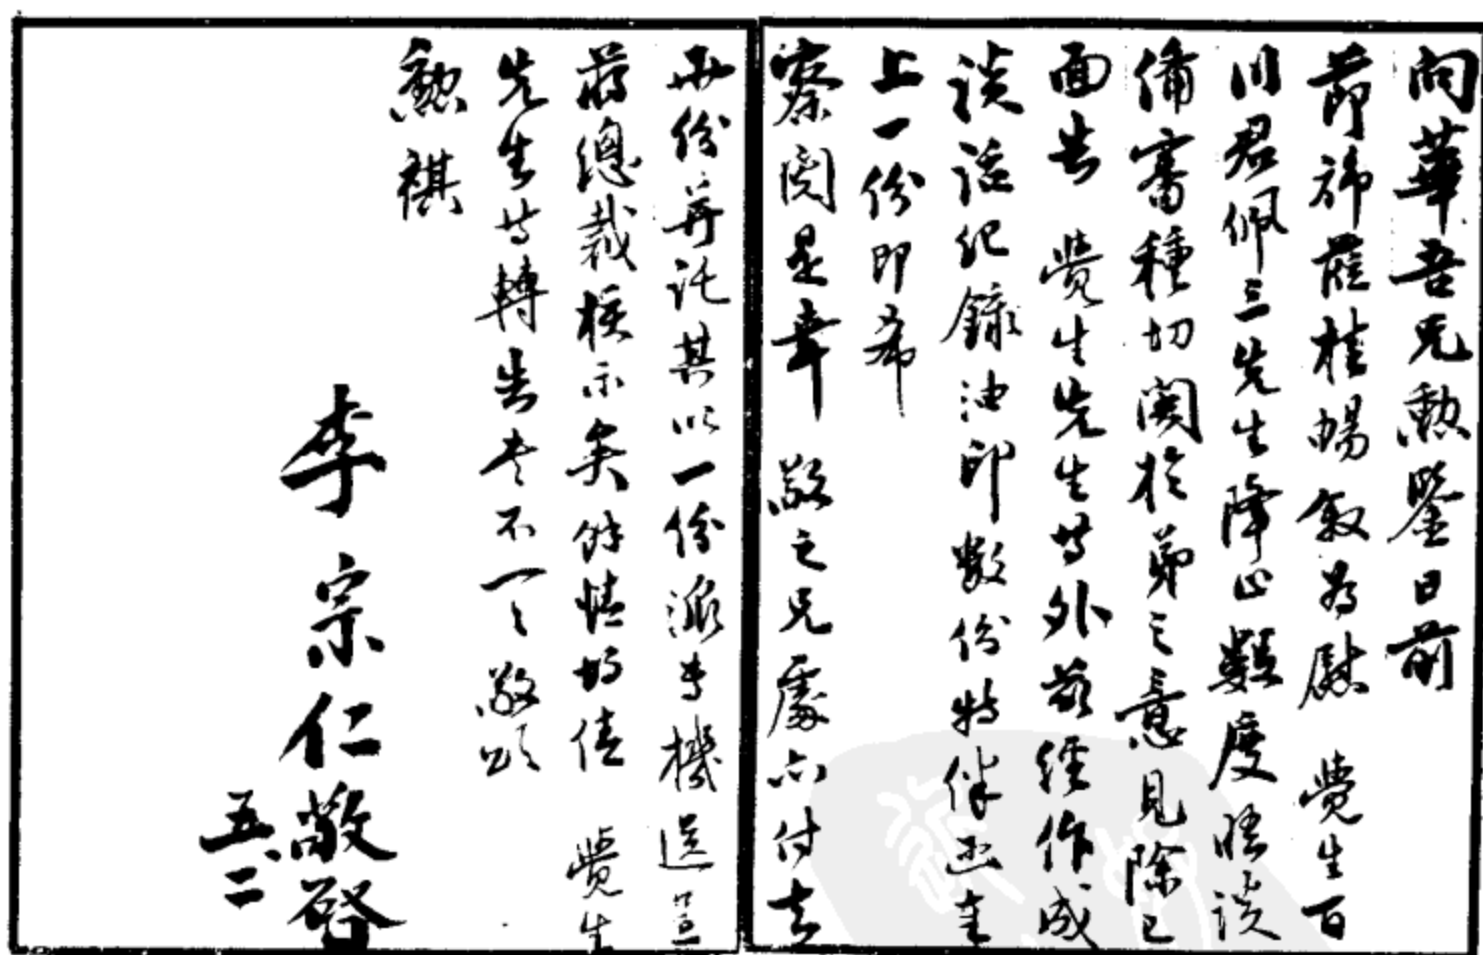 向華吾兄勳鑒日前
節旆蒞桂暢叙為慰 覺生百
川君佩三先生降止艱度晤談
備審種切關於弟之意見除已
面告 覺生先生等外茲經作成
談話紀錄油印數份特伴函奉
上一份即希
察閱是幸 敬之兄處亦付去
兩份并託其以一份派專機送呈
蔣總裁核示矣餘情均倩 覺生
先生等轉告去不一々敬頌
勳祺
李宗仁敬啓
五、二